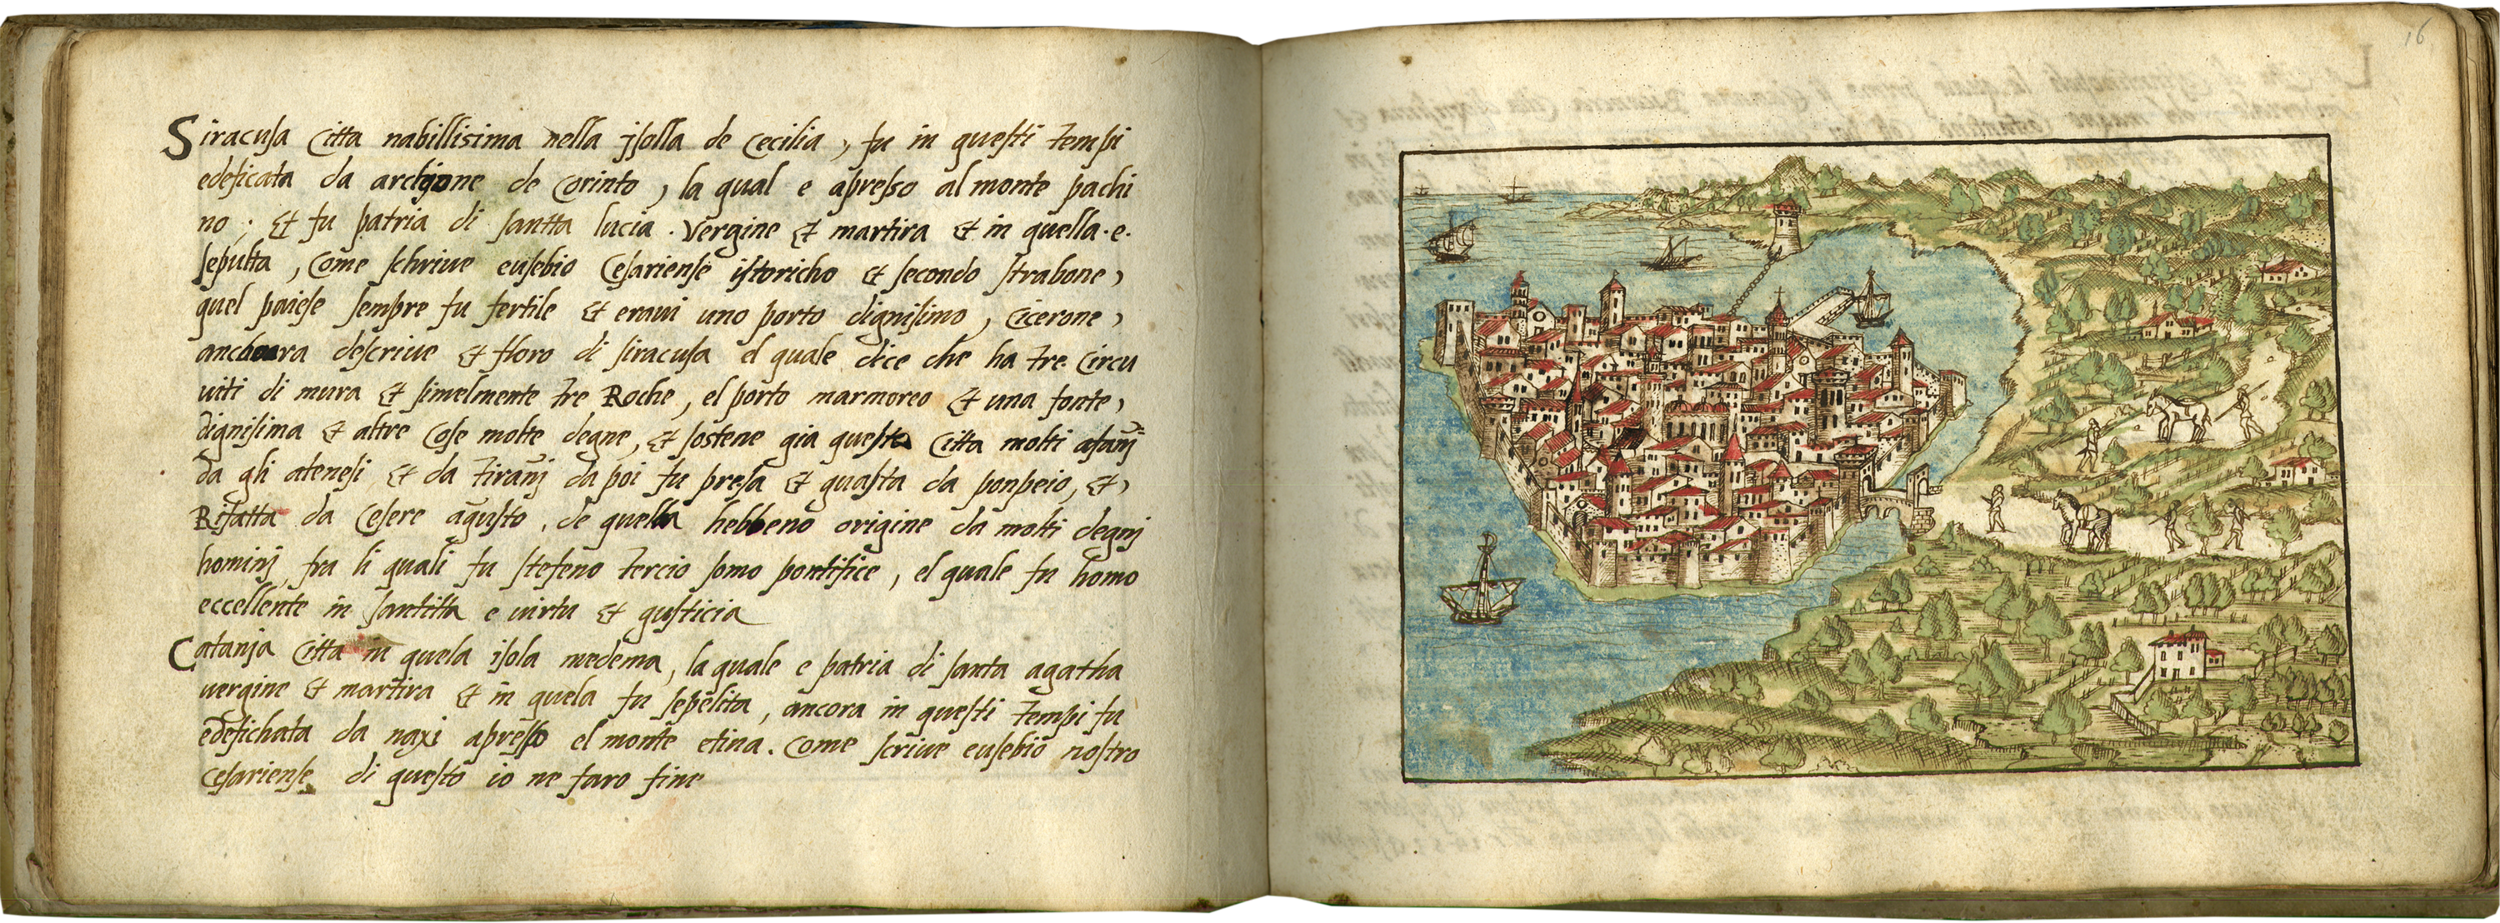 Siracusa Citta nabillisima nella isolla de Cecilia, fu in questi tempi
edeficata da archione de Corinto, la qual e apresso al monte pachi
no; et fu patria di santta lucia. Vergine et martira et in quella. e.
sepulta, Come schrive eusebio Cesariense istoricho et secondo strabone,
quel paiese sempre fu fertile et eravi uno porto dignisimo, Cicerone,
anchora descrive et floro di siracusa el quale dice che ha tre Circu
uiti di mura et simelmente tre Roche, el porto marmoreo et una fonte,
dignisima et altre Cose molte degne, et sostene gia questa Citta molti afanj
da gli atenesi et da tiranj da poi fu presa et guasta da ponpeio, et,
Rifatta da Cesere agusto, de quella hebbeno origine da molti degnj
hominj fra li quali fu stefeno tercio somo pontifice, el quale fu homo
eccellente in santitta e uirtu et gusticia
Catanja Citta in quela isola medema, la quale e patria di santa agatha
uergine et martira et in quela fu sepelita, ancora in questi tempi fu
edefichata da naxi apresso el monte etina. Come scriue eusebio nostro
Cesariense di questo io ne faro fine
16